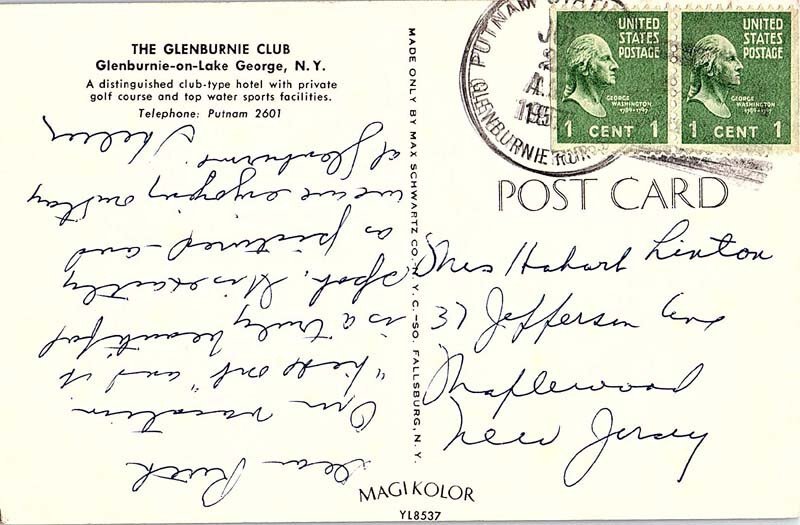 THE GLENBURNIE CLUB
Glenburnie-on-Lake George, N.Y.
A distinguished club-type hotel with private
golf course and top water sports facilities.
Telephone: Putnam 2601
Dear Ruth
Our vacation
"petered out" and it
is a truly beautiful
spot. It is exactly
as pictured - and
we are enjoying our stay
at Glenburnie.
Helen
MADE ONLY BY MAX SCHWARTZ CO. N.Y.C.-SO. FALLSBURG, N.Y.
PUTNAM STATI
GLENBURNIE RUR
UNITED
STATES
POSTAGE
GEORGE
WASHINGTON
1789-1797
1 CENT 1
UNITED
STATES
POSTAGE
GEORGE
WASHINGTON
1789-1797
1 CENT 1
POST CARD
Mrs Hobart Linton
37 Jefferson Ave
Maplewood
New Jersey
MAGIKOLOR
YL8537